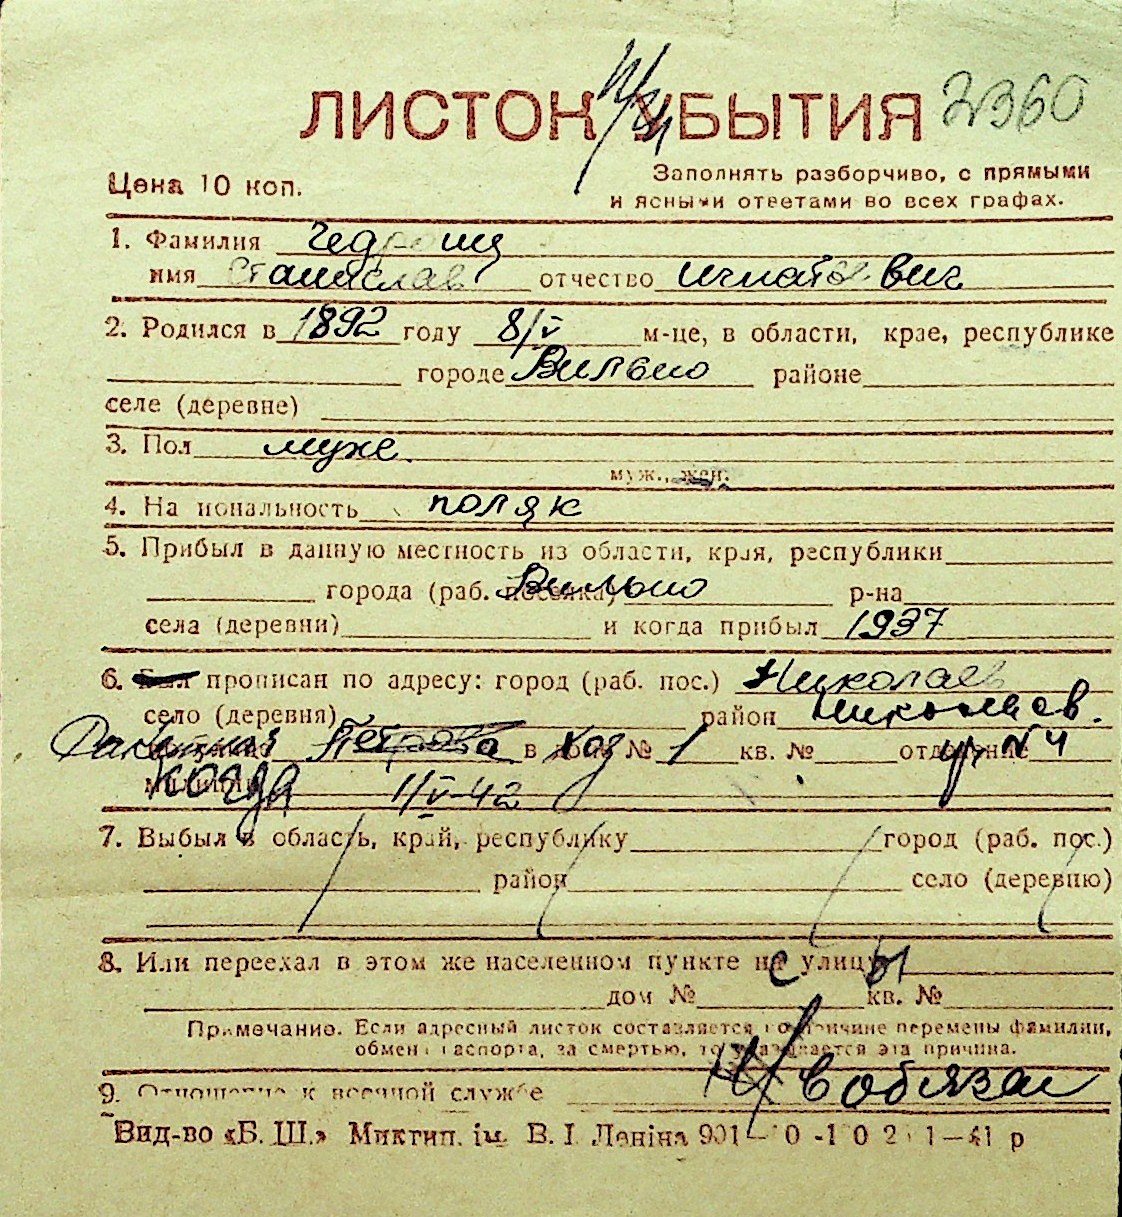 ЛИСТОК УБЫТИЯ 2360
Цена 10 коп.
Заполнять разборчиво, с прямыми
и ясными ответами во всех графах.
1. Фамилия
имя Станислав отчество Игнатович
2. Родился в 1892 году 8/V м-це, в области, крае, республике
городе Вильно районе
селе (деревне)
3. Пол муже.
муж., жен.
4. Национальность поляк
5. Прибыл в данную местность из области, края, республики
города (раб. поселка) Вильно р-на
села (деревни) и когда прибыл 1937
6. Был прописан по адресу: город (раб. пос.) Николаев
село (деревня) район Николаев.
Петрова в доме № 1 кв. № отделение №4
милиции когда 1/V-42
7. Выбыл в область, край, республику город (раб. пос.)
район село (деревню)
8. Или переехал в этом же населенном пункте на улицу
дом № кв. №
Примечание. Если адресный листок составляется по причине перемены фамилии,
обмена паспорта, за смертью, то указывается эта причина.
9. Отношение к военной службе
Вид-во «Б. Ш.» Миктип. ім. В. І. Леніна